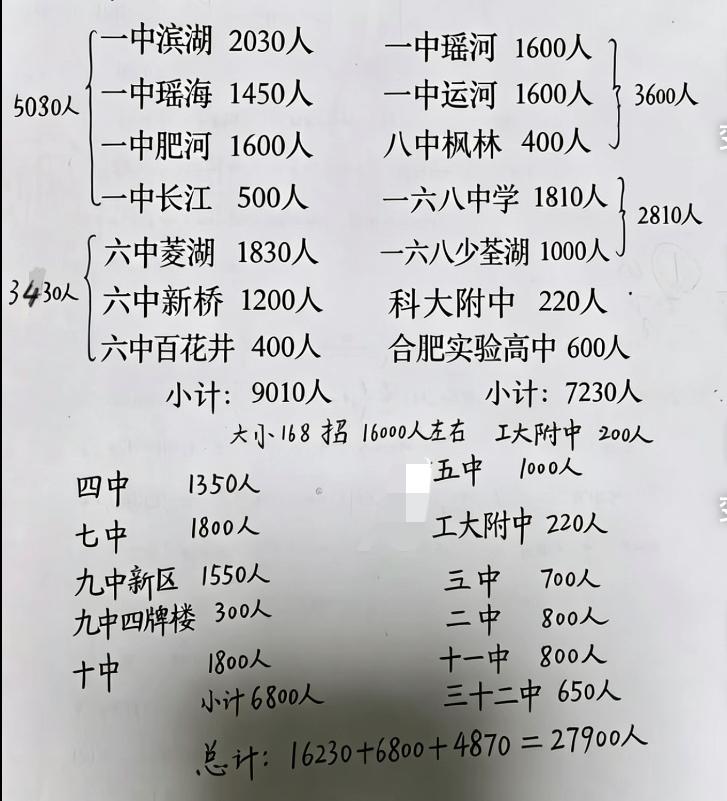 一中滨湖 2030人 一中瑶河 1600人
5080人 3600人
一中瑶海 1450人 一中运河 1600人
一中肥河 1600人 八中枫林 400人
一中长江 500人 一六八中学 1810人
2810人
六中菱湖 1830人 一六八少荃湖 1000人
3430人 六中新桥 1200人 科大附中 220人
六中百花井 400人 合肥实验高中 600人
小计: 9010人 小计: 7230人
大小168 招 16000人左右 工大附中 200人
四中 1350人 五中 1000人
七中 1800人 工大附中 220人
九中新区 1550人 三中 700人
九中四牌楼 300人 二中 800人
十中 1800人 十一中 800人
小计6800人 三十二中 650人
总计: 16230+6800+4870=27900人